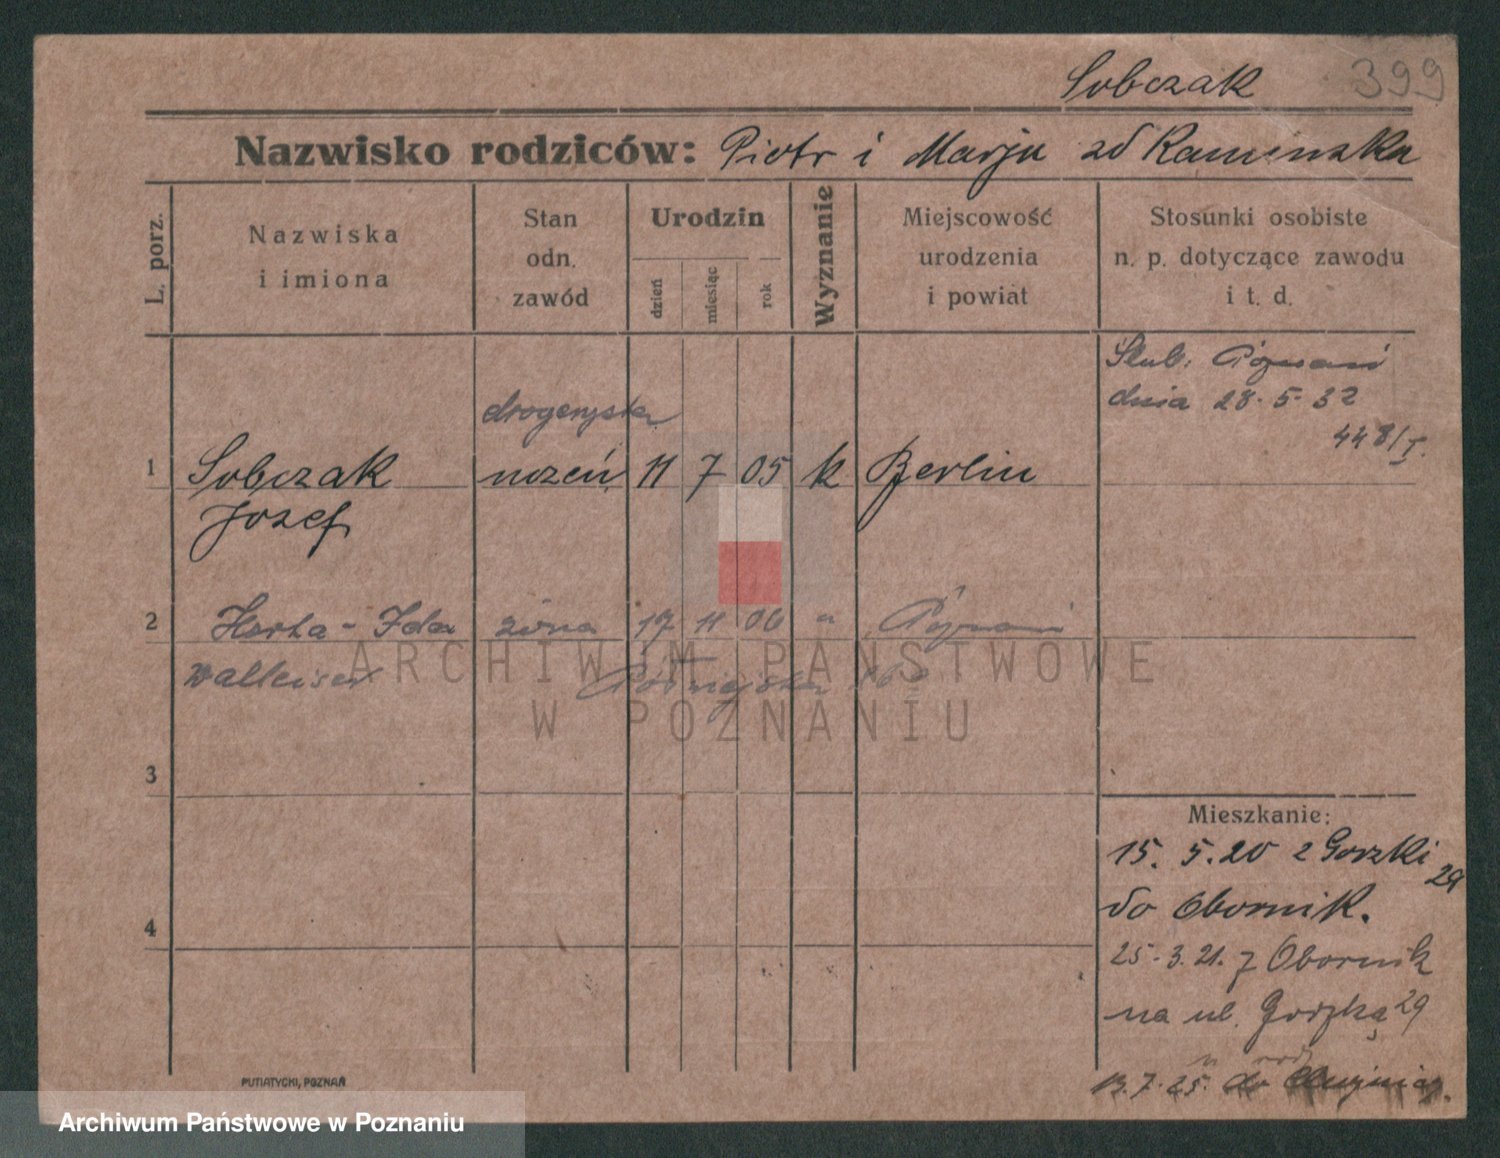 Sobczak 399
Nazwisko rodziców: Piotr i Marja zd Kamińska
L. porz.
Nazwiska
i imiona
Stan
odn.
zawód
Urodzin
dzień
miesiąc
rok
Wyznanie
Miejscowość
urodzenia
i powiat
Stosunki osobiste
n. p. dotyczące zawodu
i t. d.
Ślub: Poznań
dnia 28.5.32
448/I.
drogerysta
1 Sobczak uczeń 11 7 05 k Berlin
Józef
2 Herta-Ida żona 17 11 06 " Poznań
Walleiser
ARCHIWUM PAŃSTWOWE
W POZNANIU
3
Mieszkanie:
15.5.20 z Gorzki 29
do Obornik.
4
25.3.21. z Obornik
na ul. Gorzką 29
13.7.25. do
PUTIATYCKI, POZNAŃ
Archiwum Państwowe w Poznaniu